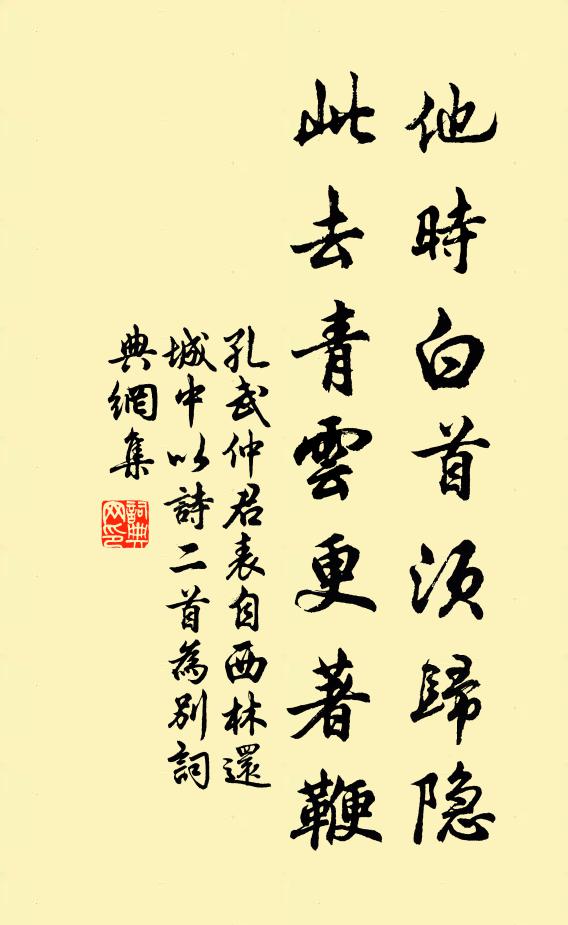 他時白首須歸隐
此去青雲更著鞭
孔武仲君表自西林還
城中以詩二首為別詞
典網集
詞典网印